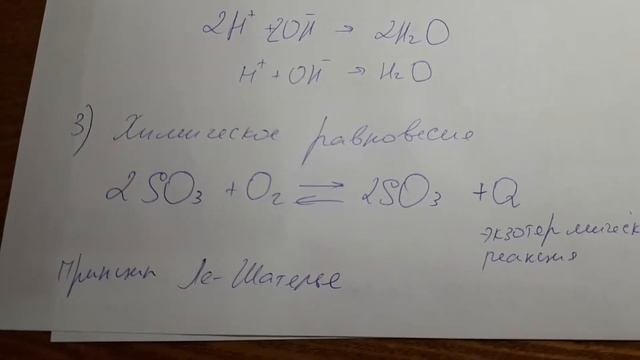 2H⁺ + 2OH⁻ → 2H₂O
H⁺ + OH⁻ → H₂O
3) Химическое равновесие
2SO₃ + O₂ ⇄ 2SO₃ + Q
экзотермическ
реакция
Принцип Ле-Шателье